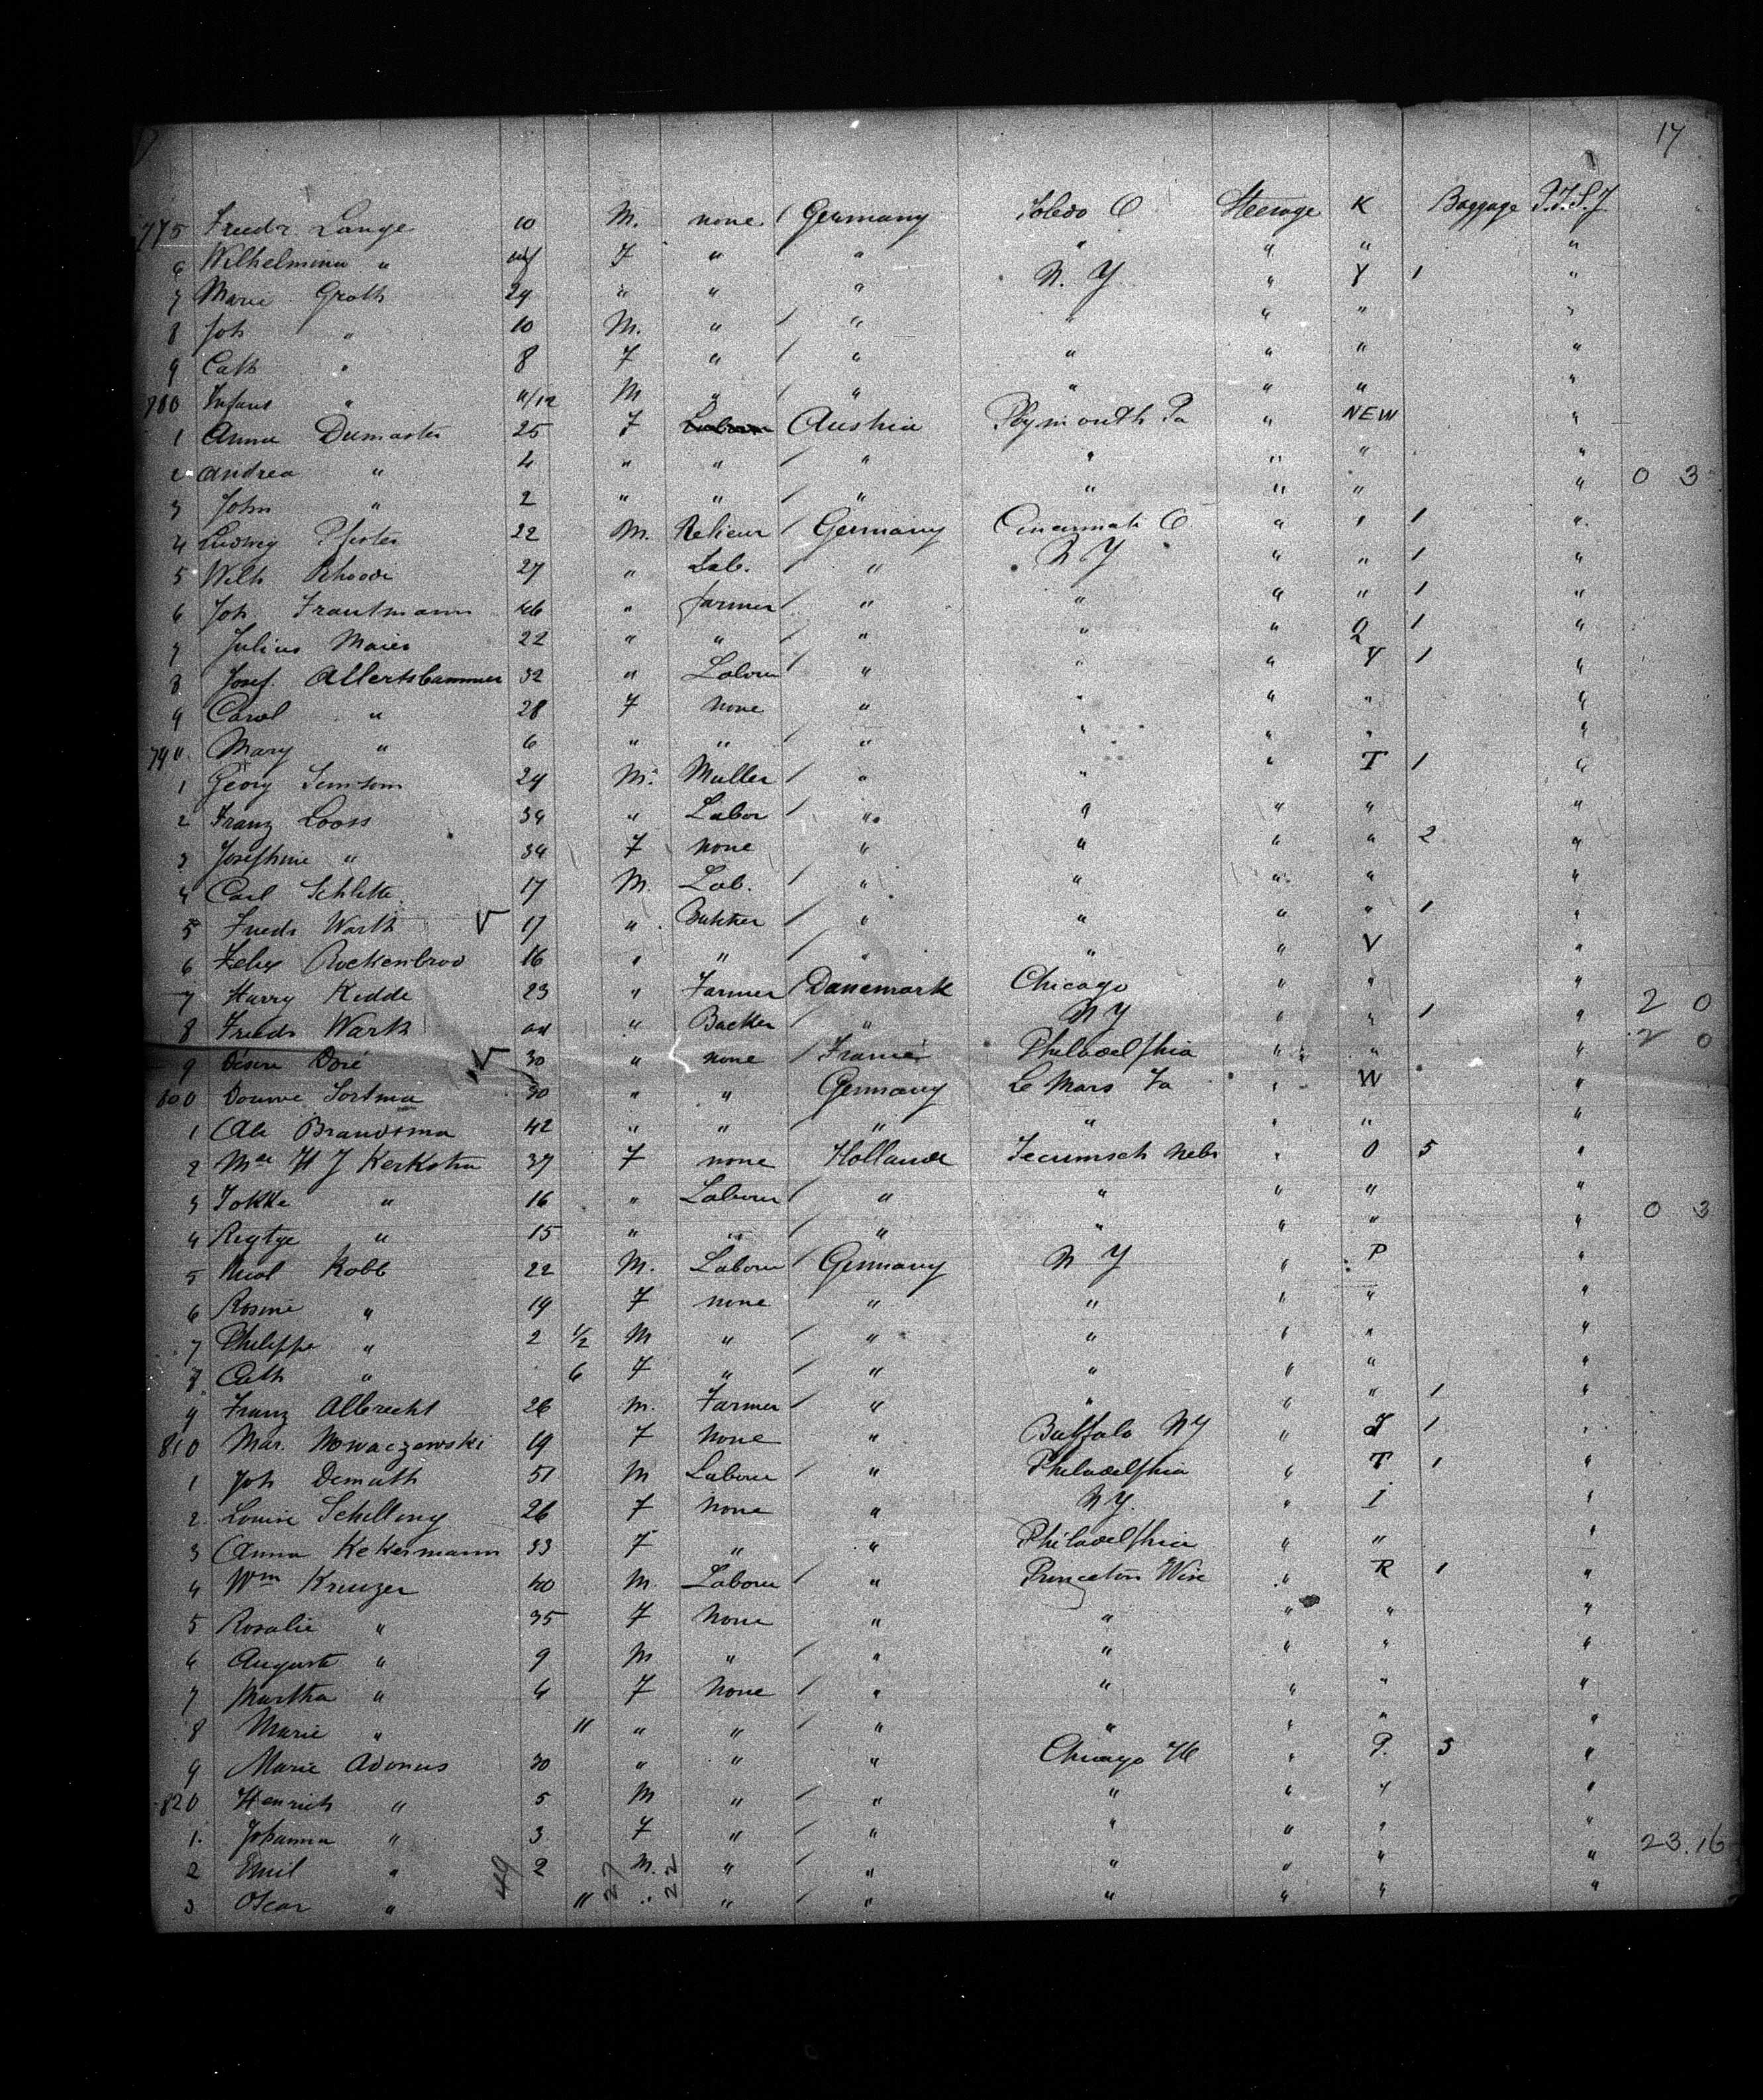 17
775 Friedr. Lange 10 M. none / Germany Toledo O Steerage K Baggage
6 Wilhelmina " F " " " " " "
7 Marie Groth 29 " " " N. Y. " Y 1 "
8 Joh " 10 M. " / " " " " "
9 Cath " 8 F " / " " " " "
780 Infant " 11/12 M " / " " " " "
1 Anna Dumaster 25 F Austria Plymouth Pa " NEW "
2 Andrea " 4 " " / " " " " " 0 3
3 John " 2 " " / " " " " "
4 Ludwig Pfister 22 M. Relieur / Germany Cincinnati O " " 1 "
5 Wilh Rhoode 27 " Lab. / " N Y " " 1 "
6 Joh Trautmann 46 " farmer / " " " " 1 "
7 Julius Maier 22 " " / " " " Q 1 "
8 Josef. Albertsbammer 32 " Labour / " " " Y 1 "
9 Carol " 28 F none " " " " "
790 Mary " 6 " " / " " " " "
1 Georg Simson 24 M. Muller / " " " T 1 "
2 Franz Looss 34 " Labor / " " " " "
3 Josephine " 34 F none " " " " 2 "
4 Carl Schlitte 17 M. Lab. / " " " " "
5 Friedr Warth V 17 " Butcher / " " " " 1 "
6 Felix Rockenbrod 16 " " / " " " V "
7 Harry Kedde 23 " Farmer / Danemark Chicago " " " 2 0
8 Friedr Wark " Backer / " N Y " " 1 " 2 0
9 Désiré Doré V 30 " none / France Philadelphia " " "
800 Douwe Sortma 30 " " Germany Le Mars Ia " W "
1 Abe Brandsma 42 " " " " " " "
2 Mme H J Kerkstra 37 F none Hollande Tecumseh Nebr " O 5 "
3 Tokke " 16 " Labour / " " " " " 0 3
4 Regtge " 15 " " / " " " " "
5 Nicol Kobb 22 M. Labour / Germany N Y " P "
6 Rosine " 19 F none " " " " "
7 Philippe " 2 1/2 M " / " " " " "
8 Cath " 6 F " / " " " " "
9 Franz Albrecht 26 M. Farmer / " " " " 1 "
810 Mar. Nowaczewski 19 F None " Buffalo NY " J 1 "
1 Joh Demuth 51 M Labour / " Philadelphia " T 1 "
2 Louise Schilling 26 F None " N Y. " I "
3 Anna Kekermann 33 F " " Philadelphia " " "
4 Wm Kreuzer 40 M. Labour / " Princeton Wisc " R 1 "
5 Rosalie " 35 F None " " " " "
6 Auguste " 9 M " / " " " " "
7 Martha " 4 F None / " " " " "
8 Marie " 11 " " / " " " " "
9 Marie Adonus 30 " " " Chicago Ill " P. 3 "
820 Henrich " 5 M " / " " " " "
1 Johanna " 3 F " / " " " " "
2 Emil " 2 M. " / " " " " " 23.16
3 Oscar " 11 " " / " " " " "
49 27 22